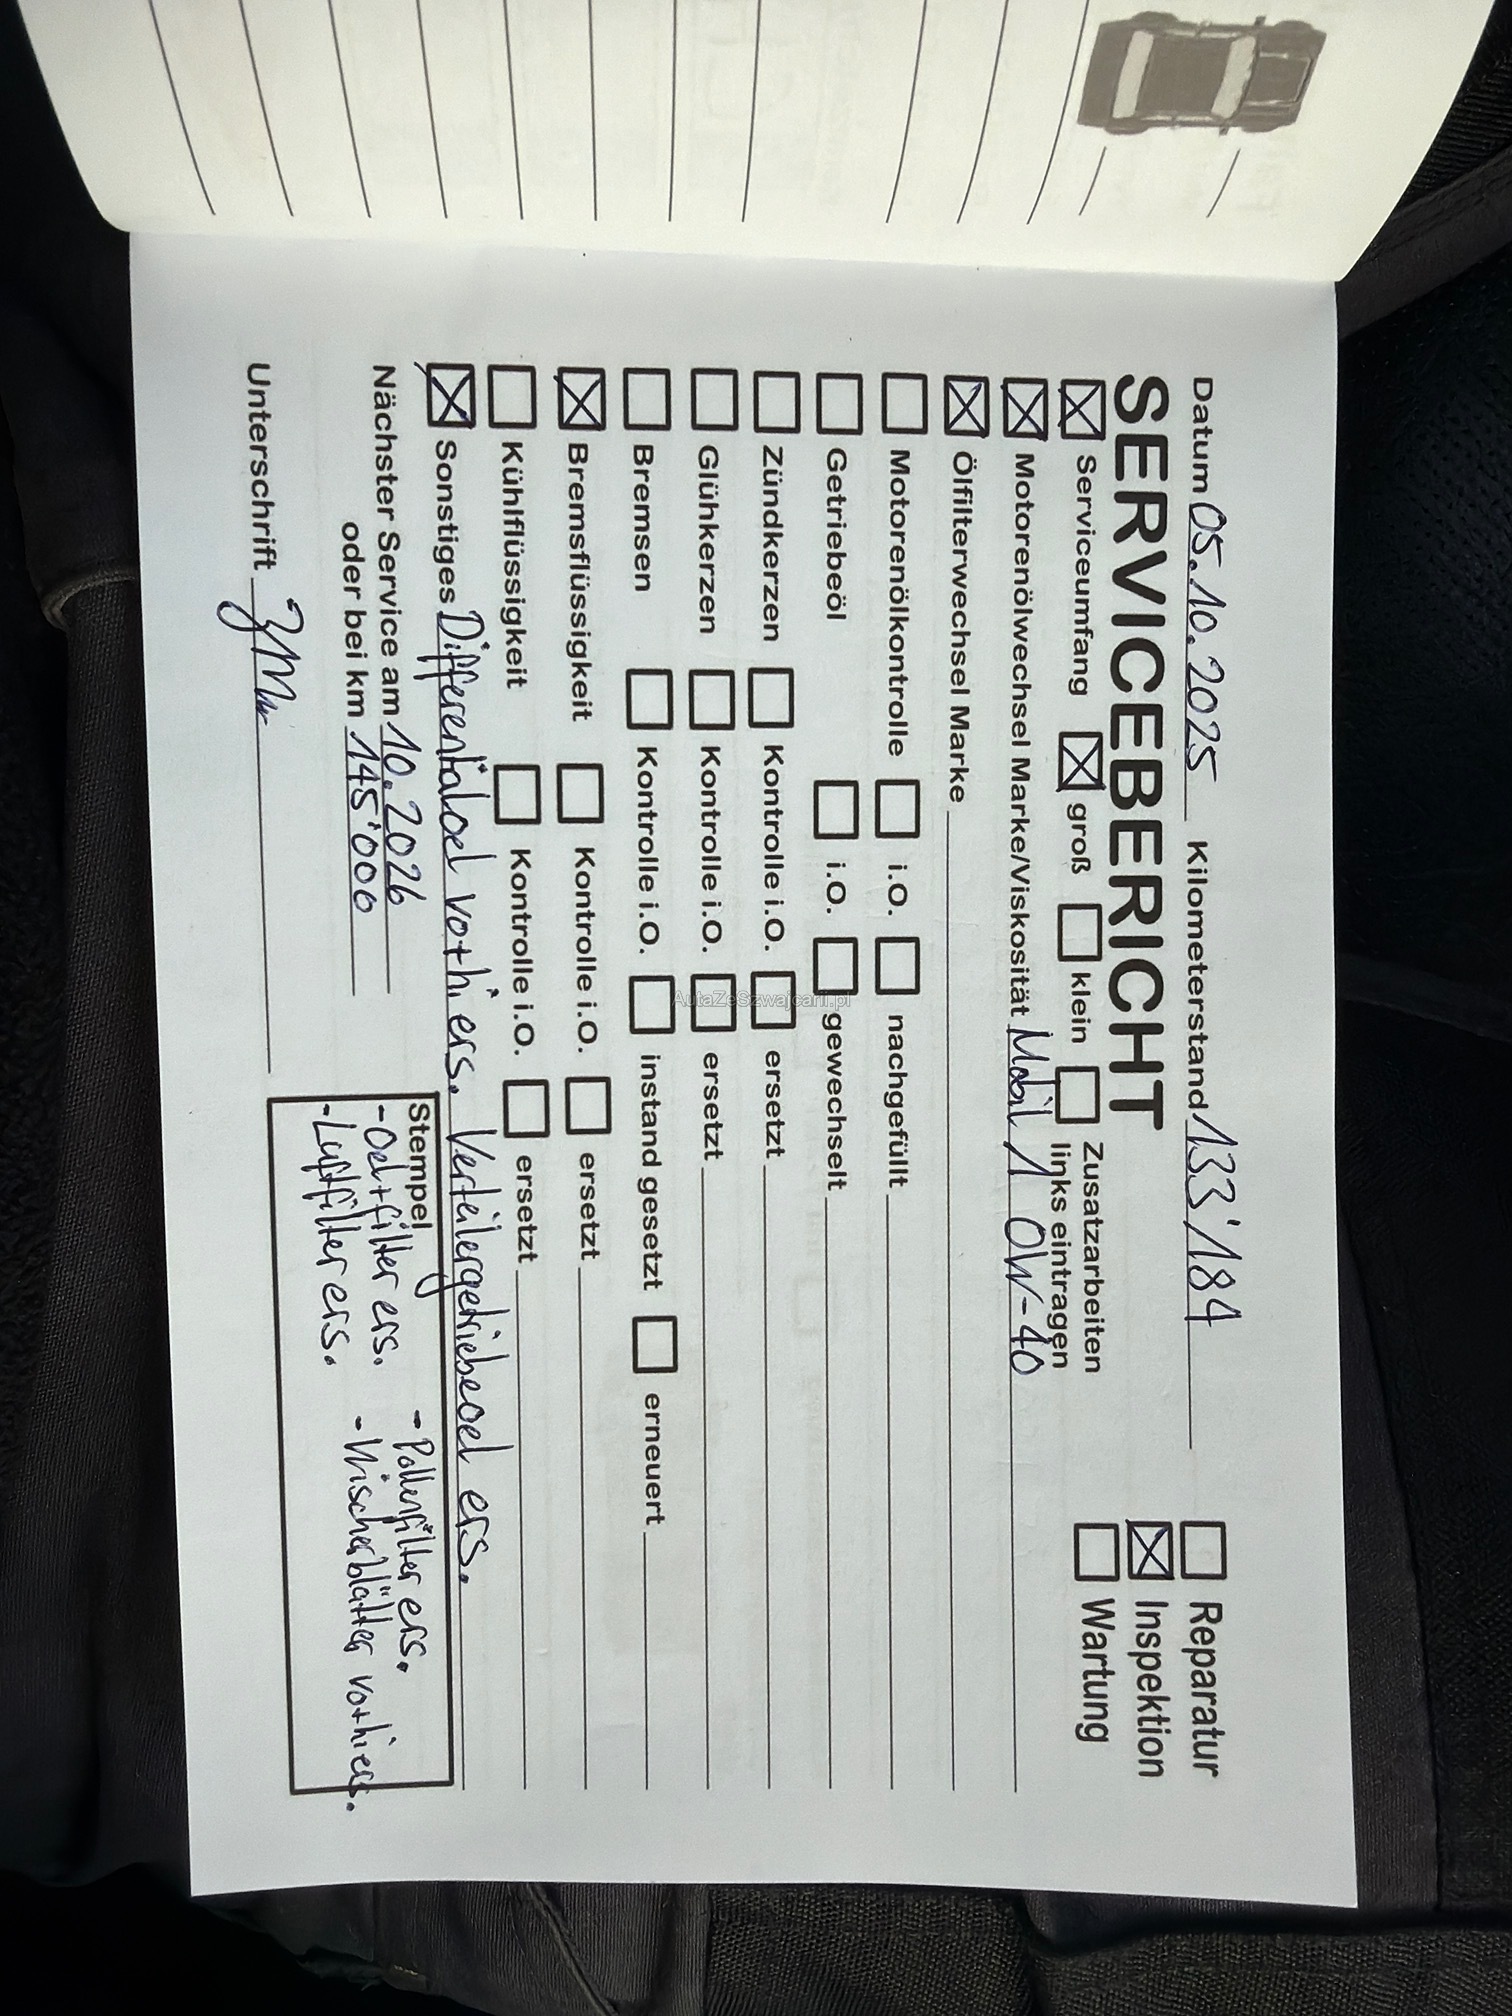 Datum 05.10.2025 Kilometerstand 133'184
SERVICEBERICHT
Reparatur
Inspektion
Wartung
Serviceumfang groß klein Zusatzarbeiten links eintragen
Motorenölwechsel Marke/Viskosität Mobil 1 0W-40
Ölfilterwechsel Marke
Motorenölkontrolle i.O. nachgefüllt
Getriebeöl i.O. gewechselt
Zündkerzen Kontrolle i.O. ersetzt
Glühkerzen Kontrolle i.O. ersetzt
Bremsen Kontrolle i.O. instand gesetzt erneuert
Bremsflüssigkeit Kontrolle i.O. ersetzt
Kühlflüssigkeit Kontrolle i.O. ersetzt
Sonstiges Differentialoel vo+hi ers. Verteilergetriebeoel ers.
Nächster Service am 10.2026
oder bei km 145'000
Unterschrift
Stempel
- Oel+filter ers. - Pollenfilter ers.
- Luftfilter ers. - Wischerblätter vo+hi ers.
AutaZeSzwajcarii.pl